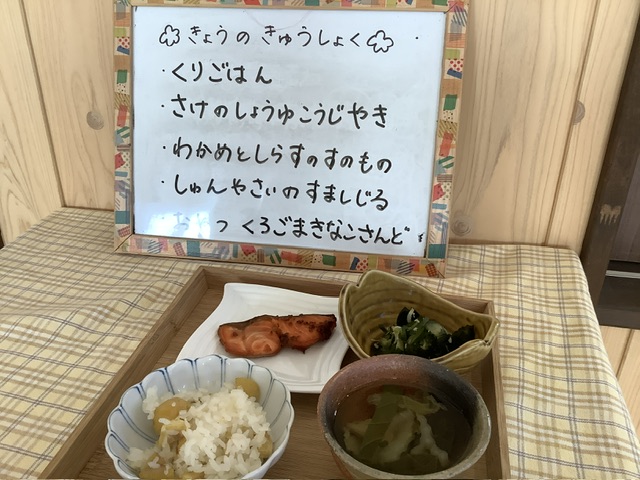 きょうの きゅうしょく
・くりごはん
・さけのしょうゆこうじやき
・わかめとしらすのすのもの
・しゅんやさいのすましじる
おやつ くろごまきなこさんど